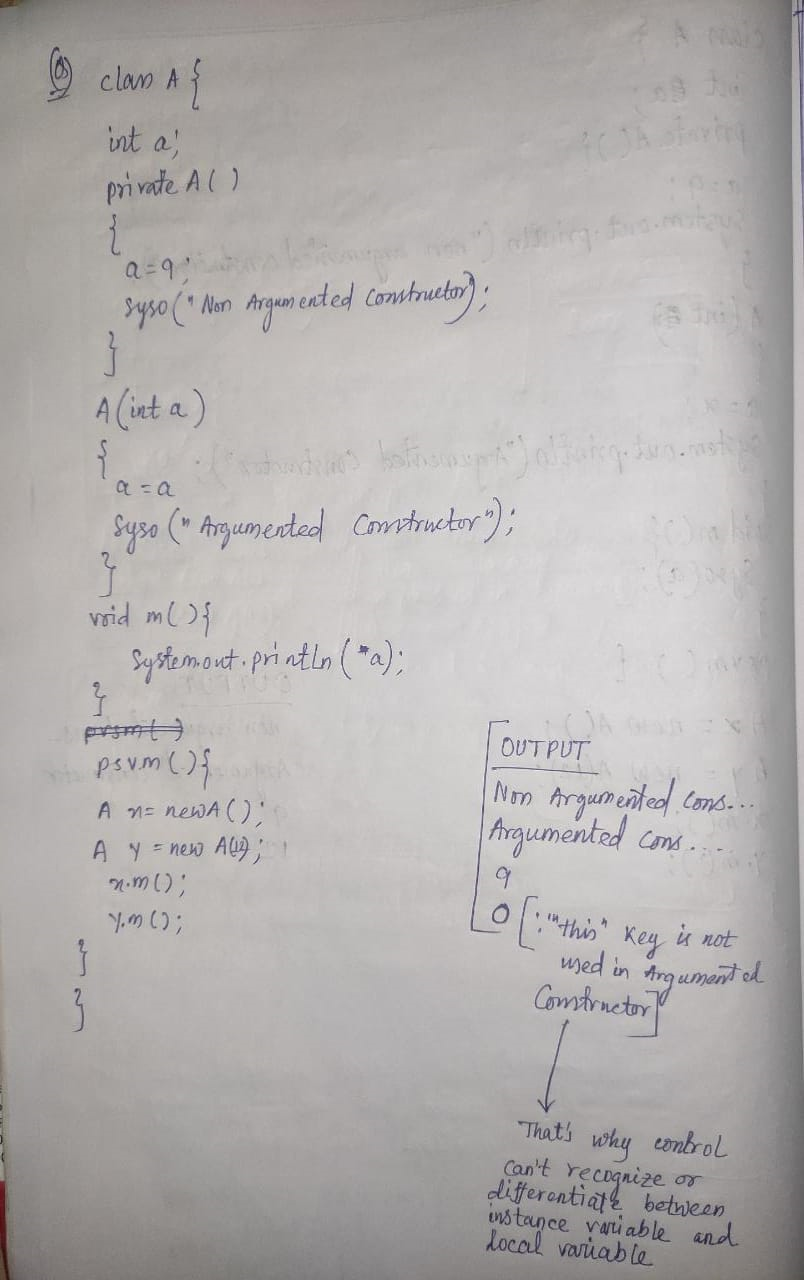 Q3
class A {
int a;
private A ( )
{
a = 9;
syso (" Non Argumented Constructor);
}
A (int a)
{
a = a
Syso (" Argumented Constructor");
}
void m ( ) {
System.out.println ("a);
}
prsm ( )
psvm ( ) {
A x = new A ( );
A y = new A(12);
x.m ( );
y.m ( );
}
}
OUTPUT
Non Argumented Cons...
Argumented cons...
9
0 [∵ "this" key is not
used in Argumented
Constructor]
That's why control
can't recognize or
differentiate between
instance variable and
local variable